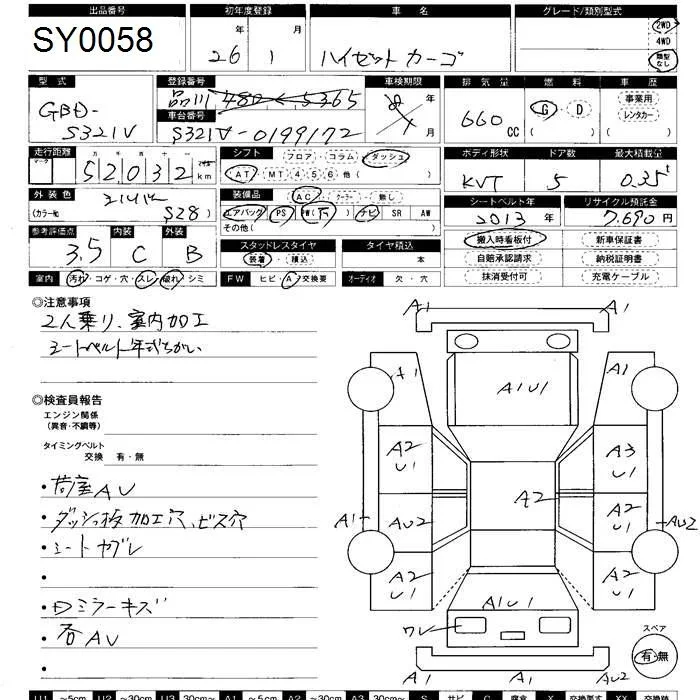 出品番号 初年度登録 車 名 グレード/類別型式
SY0058 年 月 2WD
26 1 ハイゼットカーゴ 4WD
類型なし
型 式 登録番号 車検期限 排 気 量 燃 料 車 歴
GBD- 品川 480 ← 5365 年 事業用
車台番号 660 CC G・D レンタカー
S321V S321V-0199172 月
走行距離 シフト フロア・コラム・ダッシュ ボディ形状 ドア数 最大積載量
52032 km AT・MT 4 5 6 他( ) KVT 5 0.35t
外 装 色 シルバー 装備品 AC・クーラー・無し シートベルト年 リサイクル預託金
(カラーNo. S28) エアバッグ PS PW( ) ナビ SR AW 2013年 7,690円
参考評価点 内装 外装 その他( ) 搬入時看板付 新車保証書
3.5 C B スタッドレスタイヤ タイヤ積込 自賠承認請求 納税証明書
装着・積込 本 抹消受付可 充電ケーブル
室内 汚れ・コゲ・穴・スレ・破れ・シミ FW ヒビ・A・交換要 オーディオ 欠・穴
◎注意事項
2人乗り、室内加工
シートベルト年式ちがい
◎検査員報告
エンジン関係
(異音・不調等)
タイミングベルト
交換 有・無
・荷室AU
・ダッシュ板加工穴、ビス穴
・シートヤブレ
・
・Dミラーキズ
・各AU
・
A1 A1
A1 A1U1 A1
A2 U1 A3 U1
A2
A1 AU2 A2 U1 AU2
A2 U1 A2 U1
A1U1
ワレ
スペア
有・無
A1 A1 AU2
U1 ~5cm U2 ~30cm U3 30cm~ A1 ~5cm A2 ~30cm A3 30cm~ S サビ C 腐食 X 交換要す XX 交換跡